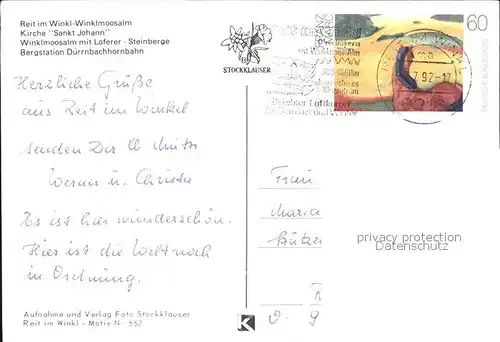 Reit im Winkl-Winklmoosalm
Kirche "Sankt Johann"
Winklmoosalm mit Loferer - Steinberge
Bergstation Dürrnbachhornbahn
STOCKKLAUSER
60
DEUTSCHE BUNDESPOST
FRANZ
MARC
7.92-17
8216
Beliebter Luftkurort
Herzliche Grüße
aus Reit im Winkel
senden Dir
Werner u. Christa
Es ist hier wunderschön.
Hier ist die Welt noch
in Ordnung.
Frau
Maria
privacy protection
Datenschutz
Aufnahme und Verlag Foto Stockklauser
Reit im Winkl - Motiv Nr. 557
K